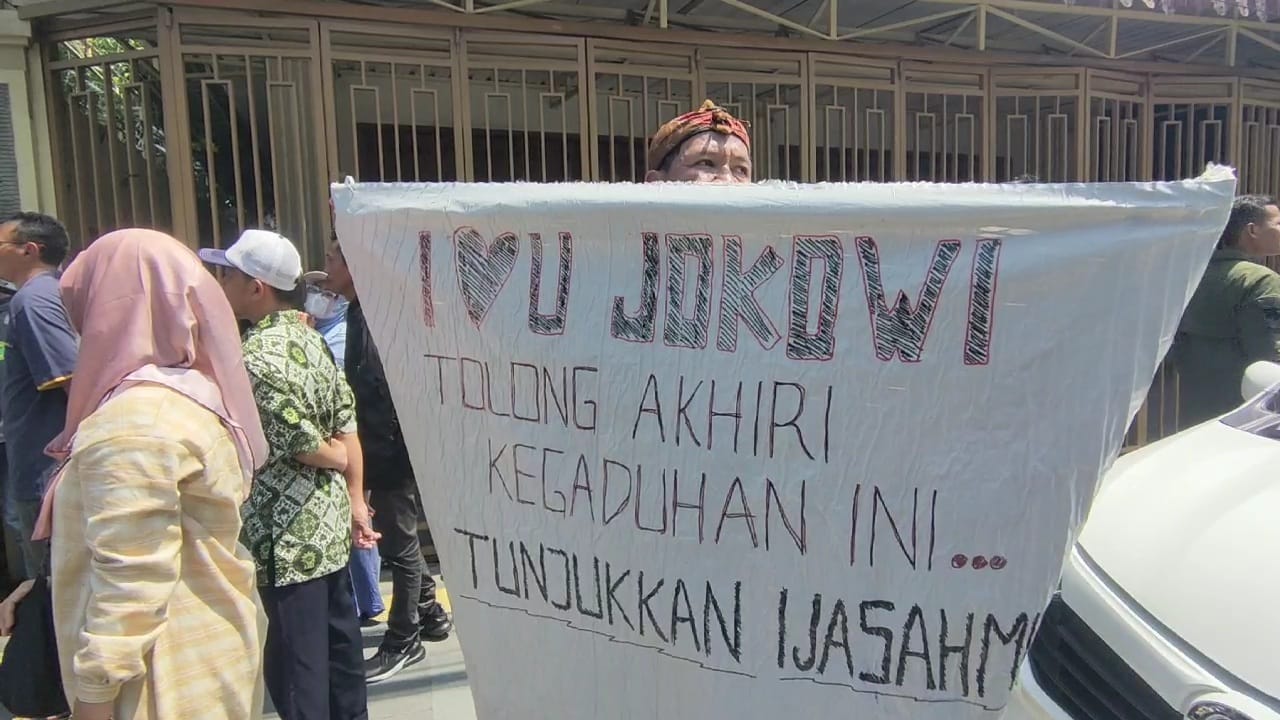 I ♥ U JOKOWI
TOLONG AKHIRI
KEGADUHAN INI...
TUNJUKKAN IJASAHM